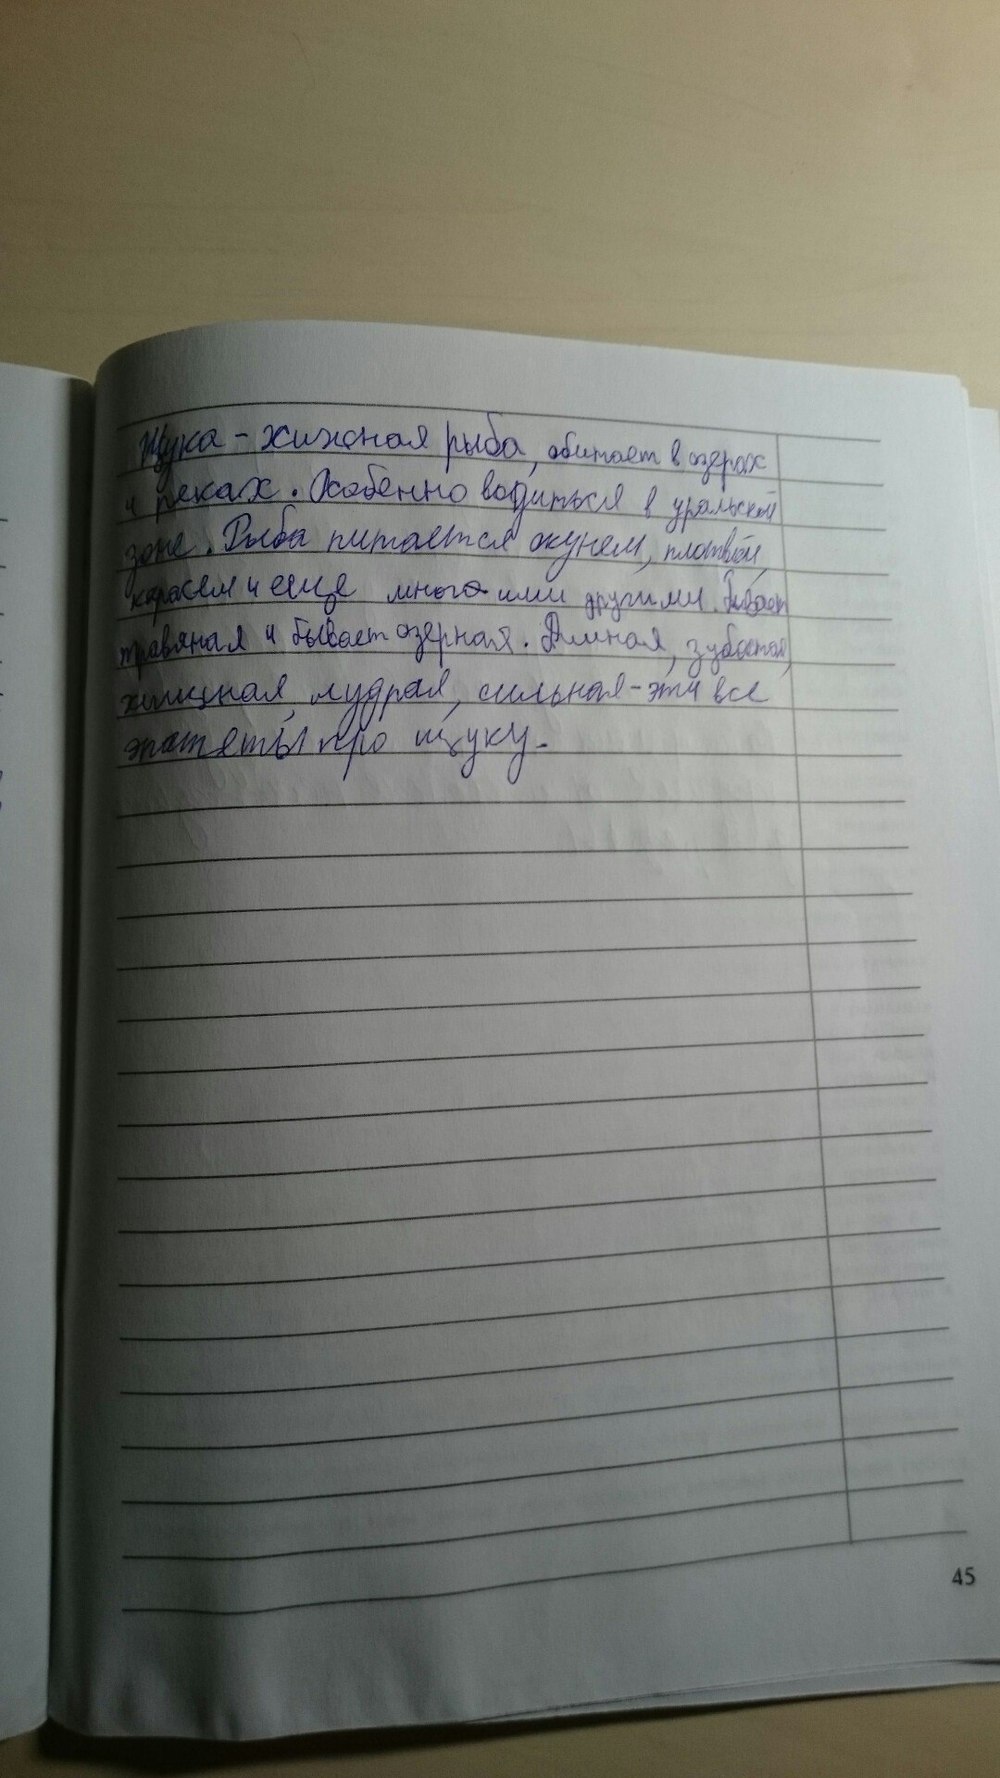 Щука - хижная рыба, обитает в озерах
и реках. Особенно водиться в уральской
зоне. Рыба питается окунем, плотвой,
карасем и еще много ими другими. Бывает
травяная и бывает озерная. Длиная, зубастая,
хищная, мудрая, сильная - эти все
эпитеты про щуку.
45